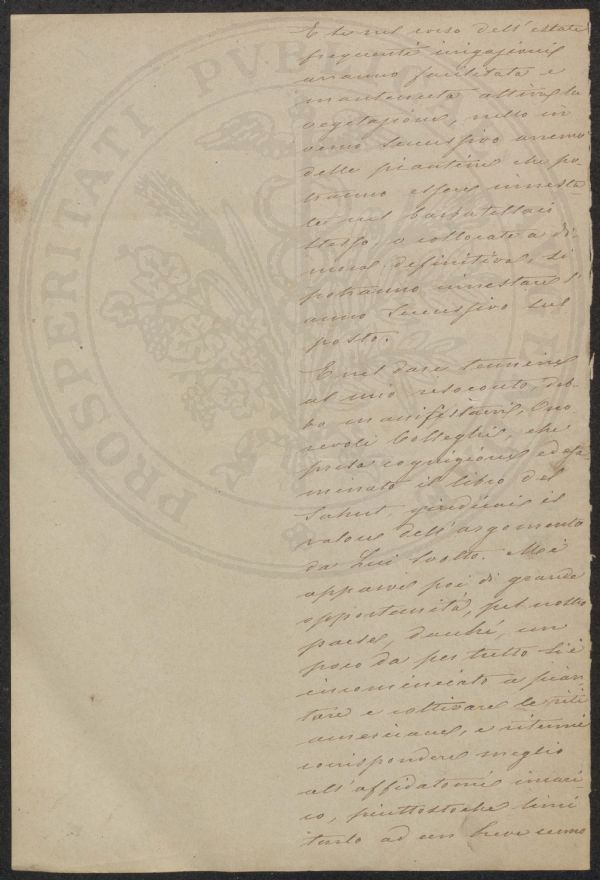 E se nel corso dell'estate
frequenti irrigazioni
avranno facilitata e
mantenuta attiva la
vegetazione, nello in
verno successivo avremo
delle piantine che po
tranno essere innesta-
te nel barbatellaio
stesso, o collocate a di-
mora definitiva, si
potranno innestare l'
anno successivo sul
posto.
E nel dare termine
al mio resoconto, deb-
bo manifestarvi, Ono-
revoli Colleghi, che
presa cognizione ed esa-
minato il libro del
Sahut, giudicai il
valore dell'argomento
da Lui svolto. Mi è
apparve poi di grande
opportunità, pel nostro
paese, dacché, un
poco da per tutto si è
incominciato a pian
tare e coltivare le viti
americane, e ritenni
corrispondere meglio
all'affidatomi incari-
co, piuttostoche limi
tarlo ad un breve cenno
PROSPERITATI PVBLICAE